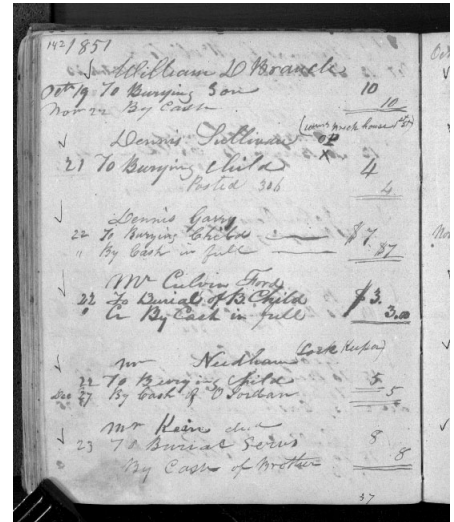 142 1851
William D Branch
Octr 19 To Burying Son 10
Nov 22 By Cash 10
Dennis Sullivan
21 To Burying Child 4
Posted 306 4
Dennis Garry
22 To Burying Child $7.
" By Cash in full $7
Mr Culvin Ford
22 To Burial of B. Child $3.
Cr By Cash in full 3.00
Mr Needham
22 To Burying Child 5
Dec 27 By Cash Jordan 5
Mr Kein
23 To Burial Servs 8
By Cash of Brother 8
37